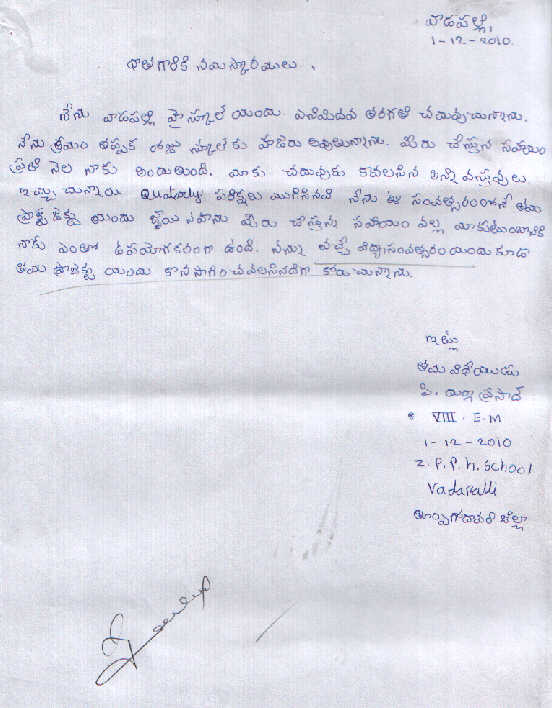 వాడపల్లి,
1-12-2010.
దాత గారికి నమస్కారములు.
నేను వాడపల్లి హైస్కూల్ యందు ఎనిమిదవ తరగతి చదువుచున్నాను.
నేను క్రమం తప్పక రోజు స్కూలుకు హాజరు అవుతున్నాను. మీరు చేస్తున్న సహాయం
ప్రతి నెల నాకు అందుతుంది. మాకు చదువుకు కావలసిన అన్ని వస్తువులు
ఇచ్చు చున్నారు Quatarly పరీక్షలు ముగిసినవి నేను ఈ సంవత్సరంలోనే తమ
ప్రాజెక్టు యందు మీరు చేస్తున్న సహాయం వల్ల మా కుటుంబానికి
నాకు ఎంతో ఉపయోగకరంగా ఉంది. నన్ను వచ్చే విద్యాసంవత్సరం యందు కూడా
తమ ప్రాజెక్టు యందు కొనసాగించవలసినదిగా కోరుచున్నాను.
ఇట్లు
తమ విధేయుడు
పి. దుర్గా ప్రసాద్
VIII. E.M
1-12-2010
Z.P.P.H. School
Vadapalli
తూర్పుగోదావరి జిల్లా